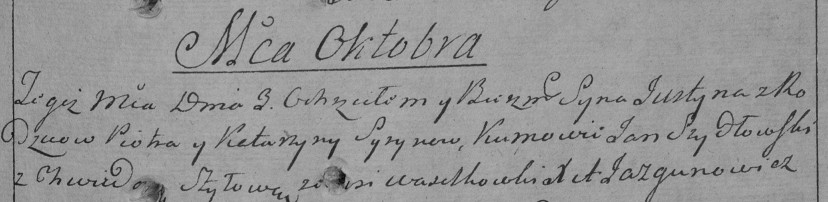 Mca Oktobra
Tegoż Mca Dnia 3. Ochrzciłem y Bierzm Syna Justyna z Ro
Dzicow Piotra y Katarzyny Syrynow, Kumowie Jan Szydłowski
z Chwiedo Szyłową ze wsi Wasilkowki X A Jazgunowicz